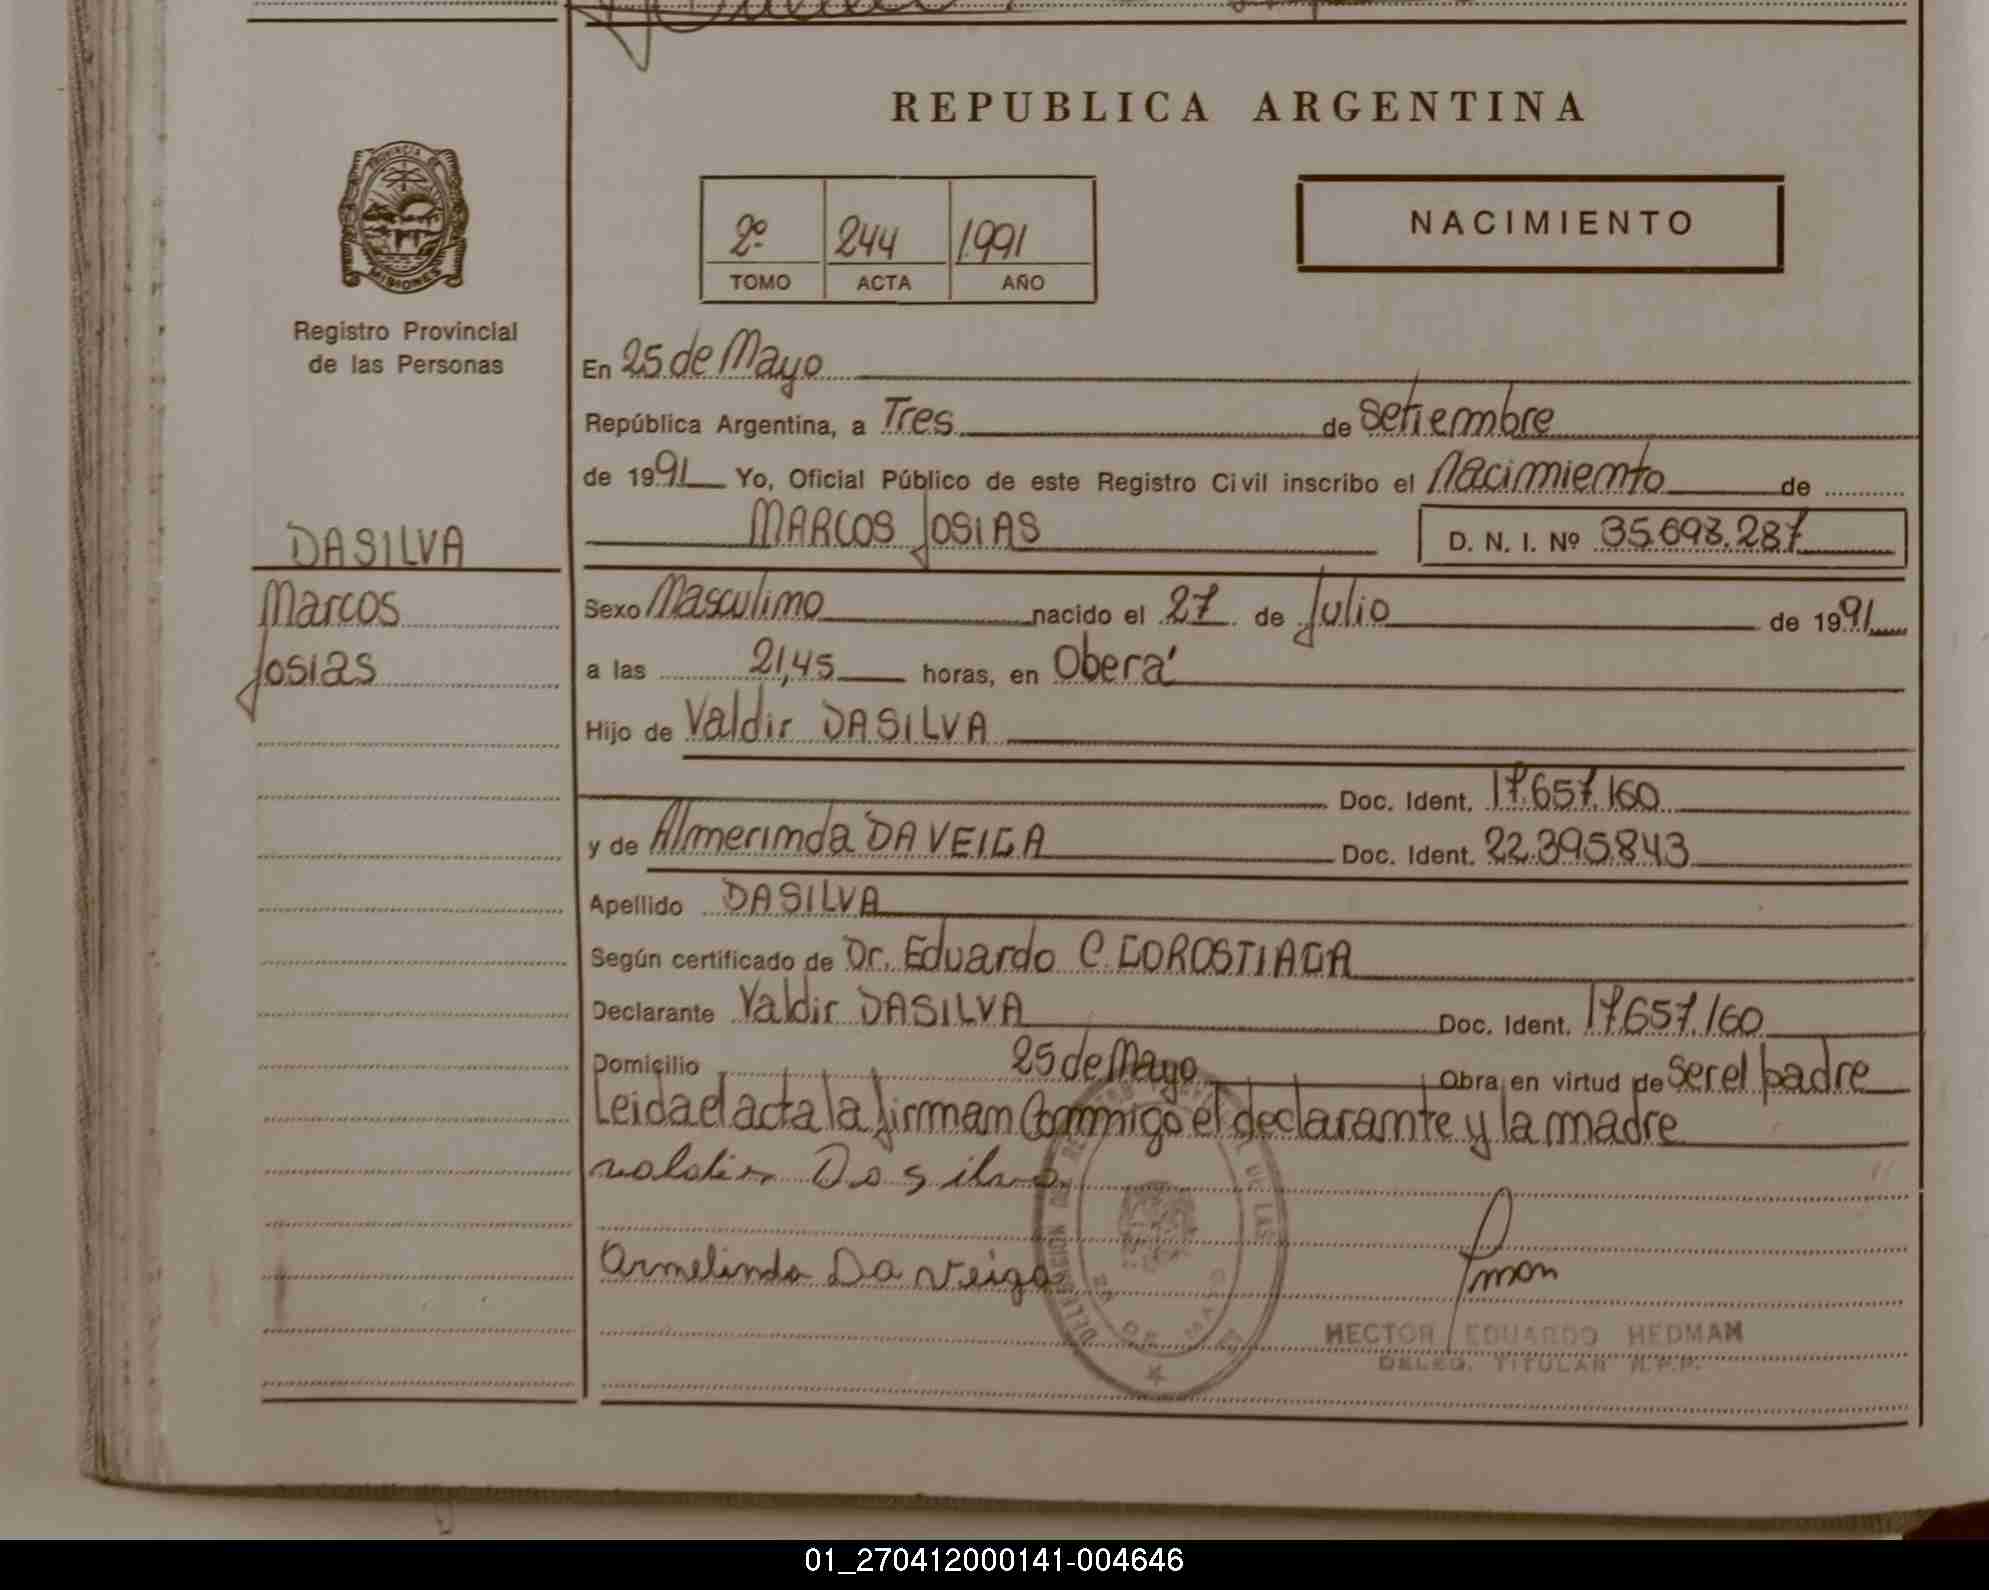 REPUBLICA ARGENTINA
PROVINCIA DE
MISIONES
Registro Provincial
de las Personas
2º 244 1991
TOMO ACTA AÑO
NACIMIENTO
En 25 de Mayo
República Argentina, a Tres de setiembre
de 1991 Yo, Oficial Público de este Registro Civil inscribo el Nacimiento de
MARCOS JOSIAS D. N. I. Nº 35.693.287
DASILVA
Marcos
Josias
Sexo Masculino nacido el 27 de Julio de 1991
a las 21,45 horas, en Oberá
Hijo de Valdir DASILVA
Doc. Ident. 17.657.160
y de Almerinda DA VEIGA Doc. Ident. 22.395.843
Apellido DASILVA
Según certificado de Dr. Eduardo C. GOROSTIAGA
Declarante Valdir DASILVA Doc. Ident. 17.657.160
Domicilio 25 de Mayo Obra en virtud de ser el padre
Leida el acta la firman conmigo el declarante y la madre
valdir Da silva
Armelinda Da veiga
HECTOR EDUARDO HEDMAN
DELEG. TITULAR R.P.P.
01_270412000141-004646